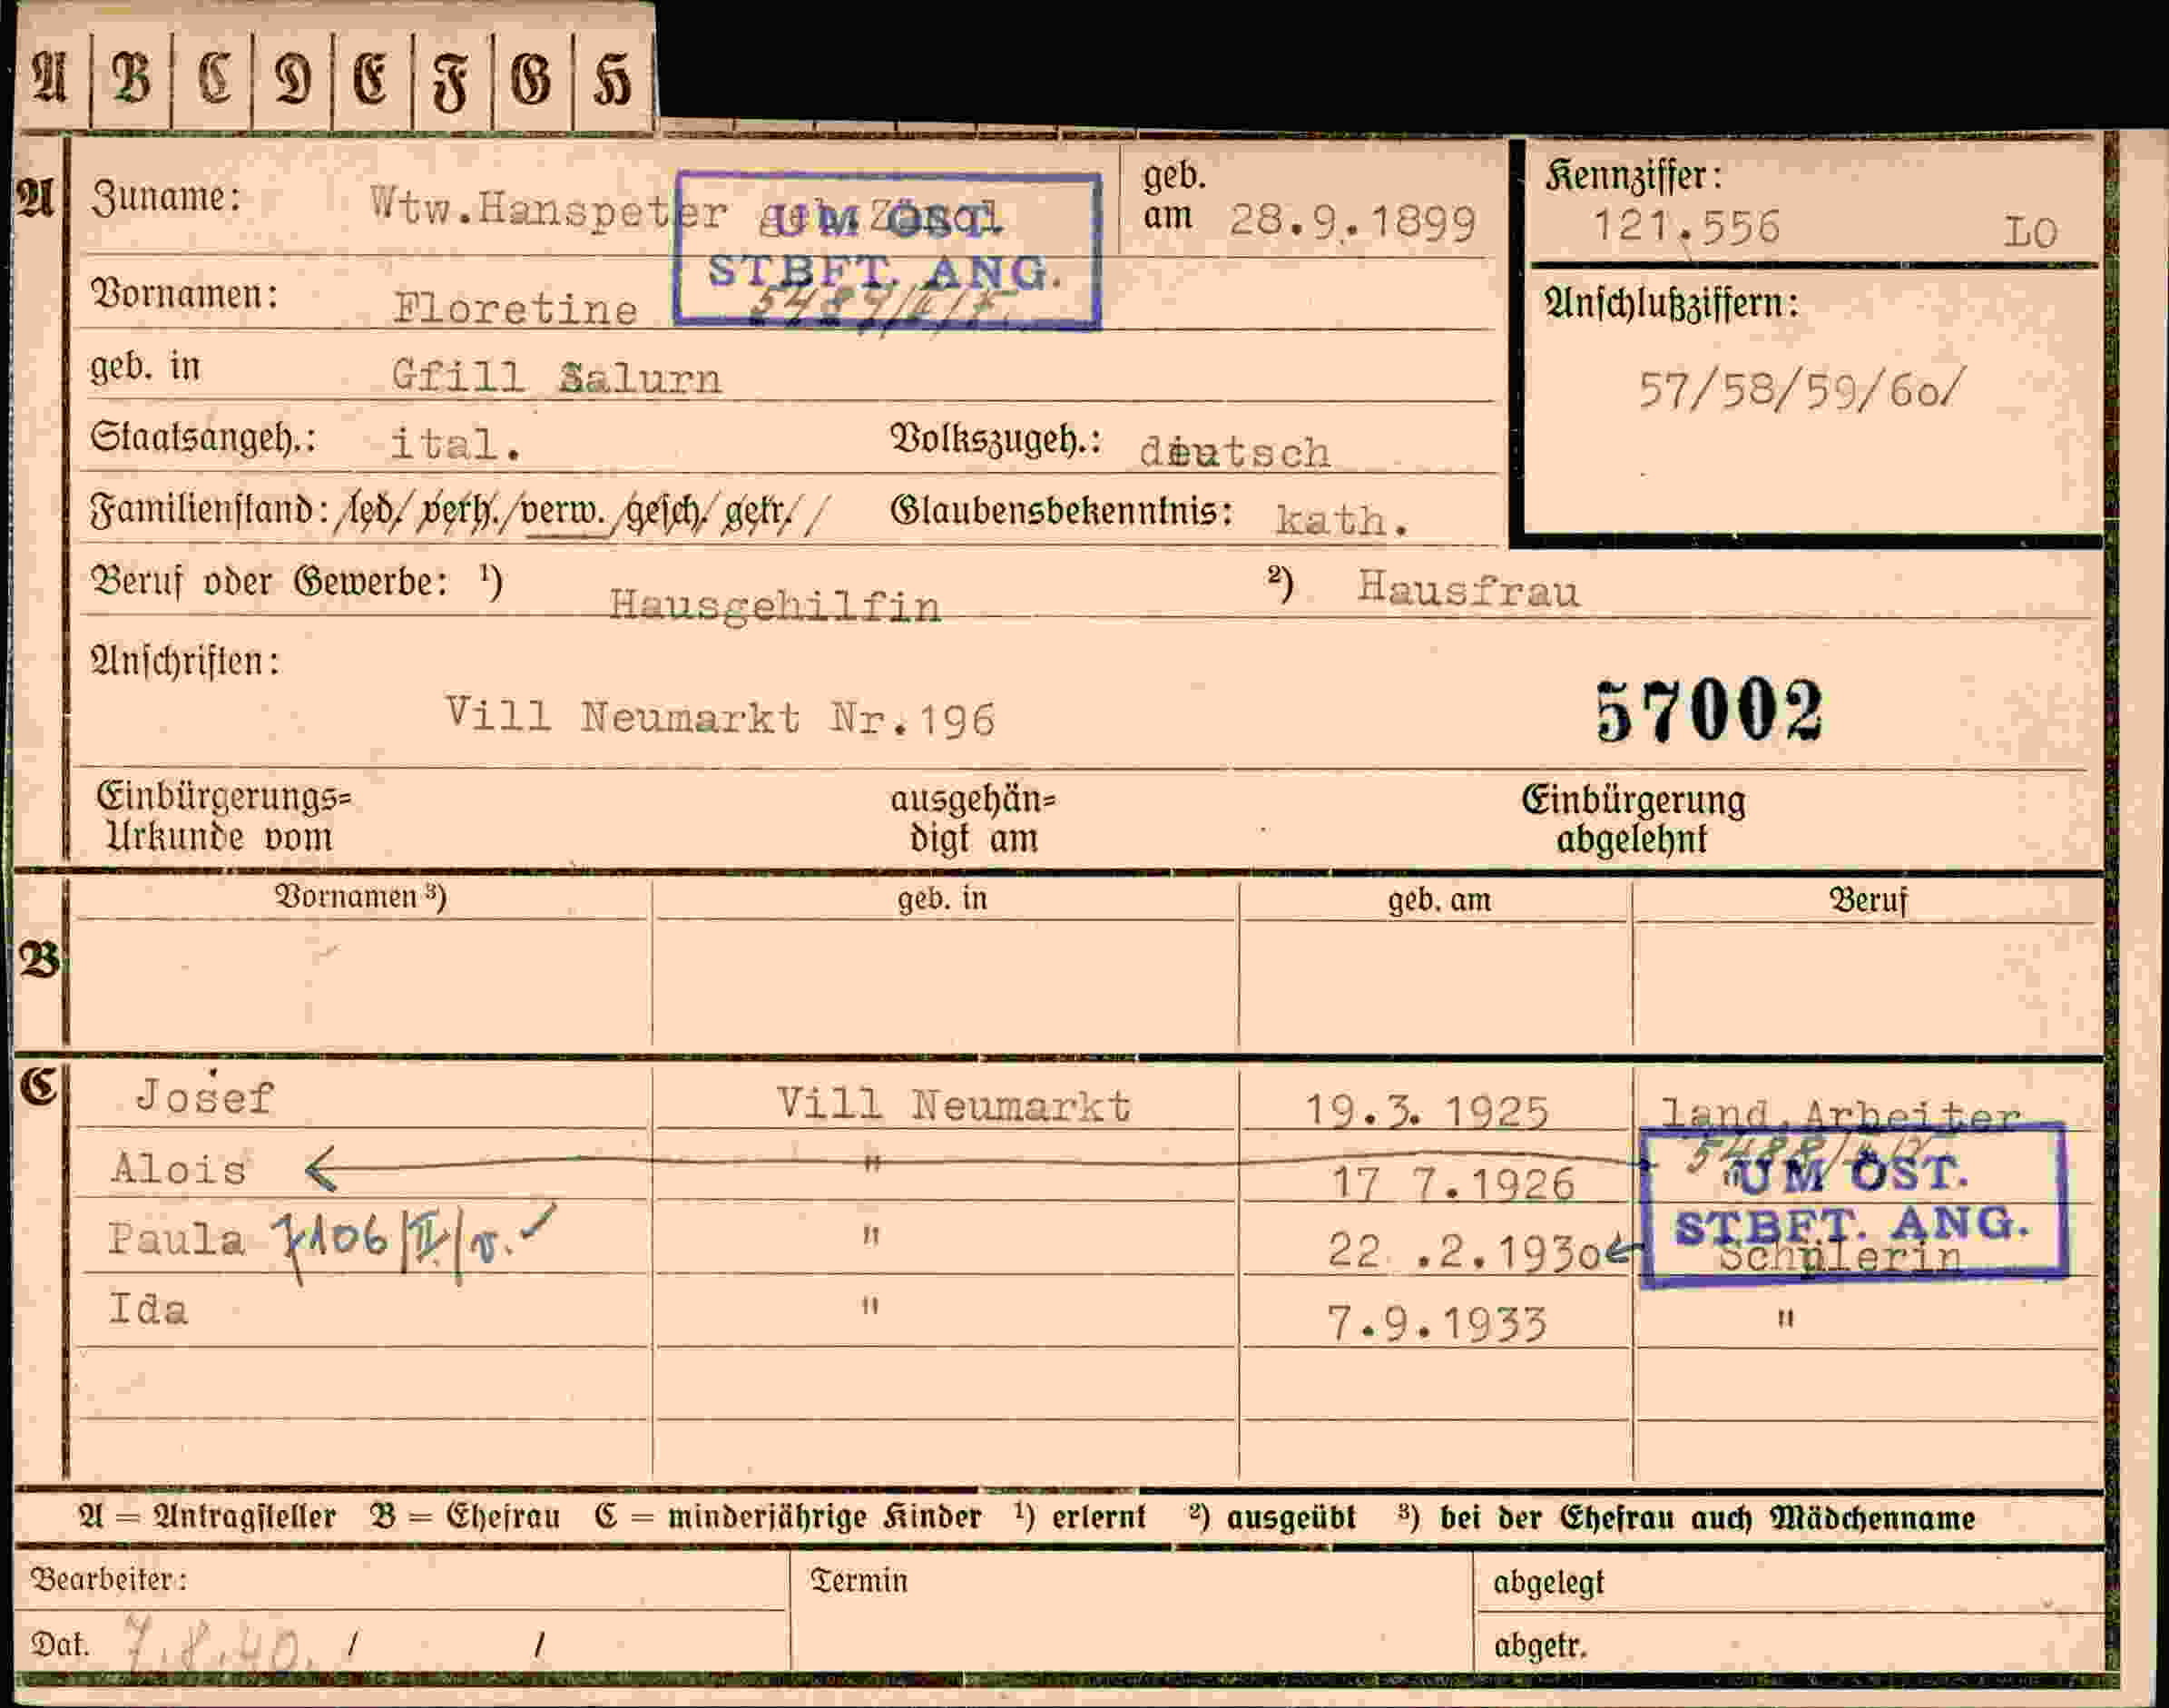 A B C D E F G H
A Zuname: Wtw.Hanspeter geb. geb. am 28.9.1899 Kennziffer: 121.556 LO
UM ÖST.
STBFT. ANG.
Vornamen: Floretine Anschlußziffern:
geb. in Gfill Salurn 57/58/59/60/
Staatsangeh.: ital. Volkszugeh.: deutsch
Familienstand: /led/ verh./verw./gesch/getr// Glaubensbekenntnis: kath.
Beruf oder Gewerbe: ¹) Hausgehilfin ²) Hausfrau
Anschriften:
Vill Neumarkt Nr.196 57002
Einbürgerungs= ausgehän= Einbürgerung
Urkunde vom digt am abgelehnt
Vornamen ³) geb. in geb. am Beruf
B
C Josef Vill Neumarkt 19.3. 1925 land.Arbeiter
Alois " 17 7.1926 "
UM ÖST.
STBFT. ANG.
Paula 7106/II/v. " 22 .2.1930 Schülerin
Ida " 7.9.1933 "
A = Antragsteller B = Ehefrau C = minderjährige Kinder ¹) erlernt ²) ausgeübt ³) bei der Ehefrau auch Mädchenname
Bearbeiter: Termin abgelegt
Dat. 7.8.40. / / abgetr.